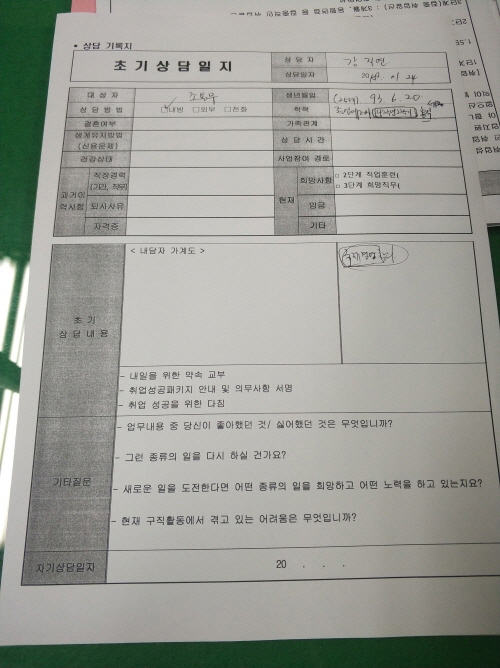 • 상담 기록지
초기상담일지
상담자
상담일자
대상자
생년월일 93. 6. 20
상담방법 □내방 □외부 □전화
학력
결혼여부
가족관계
생계유지방법
(신용문제)
상담시간
건강상태
사업참여 경로
과거이력사항
직장경력
(기간, 직무)
퇴사사유
자격증
현재
희망사항
□ 2단계 직업훈련(
□ 3단계 희망직무(
임금
기타
초기
상담내용
< 내담자 가계도 >
- 내일을 위한 약속 교부
- 취업성공패키지 안내 및 의무사항 서명
- 취업 성공을 위한 다짐
기타질문
- 업무내용 중 당신이 좋아했던 것/ 싫어했던 것은 무엇입니까?
- 그런 종류의 일을 다시 하실 건가요?
- 새로운 일을 도전한다면 어떤 종류의 일을 희망하고 어떤 노력을 하고 있는지요?
- 현재 구직활동에서 겪고 있는 어려움은 무엇입니까?
차기상담일자
20 . . .